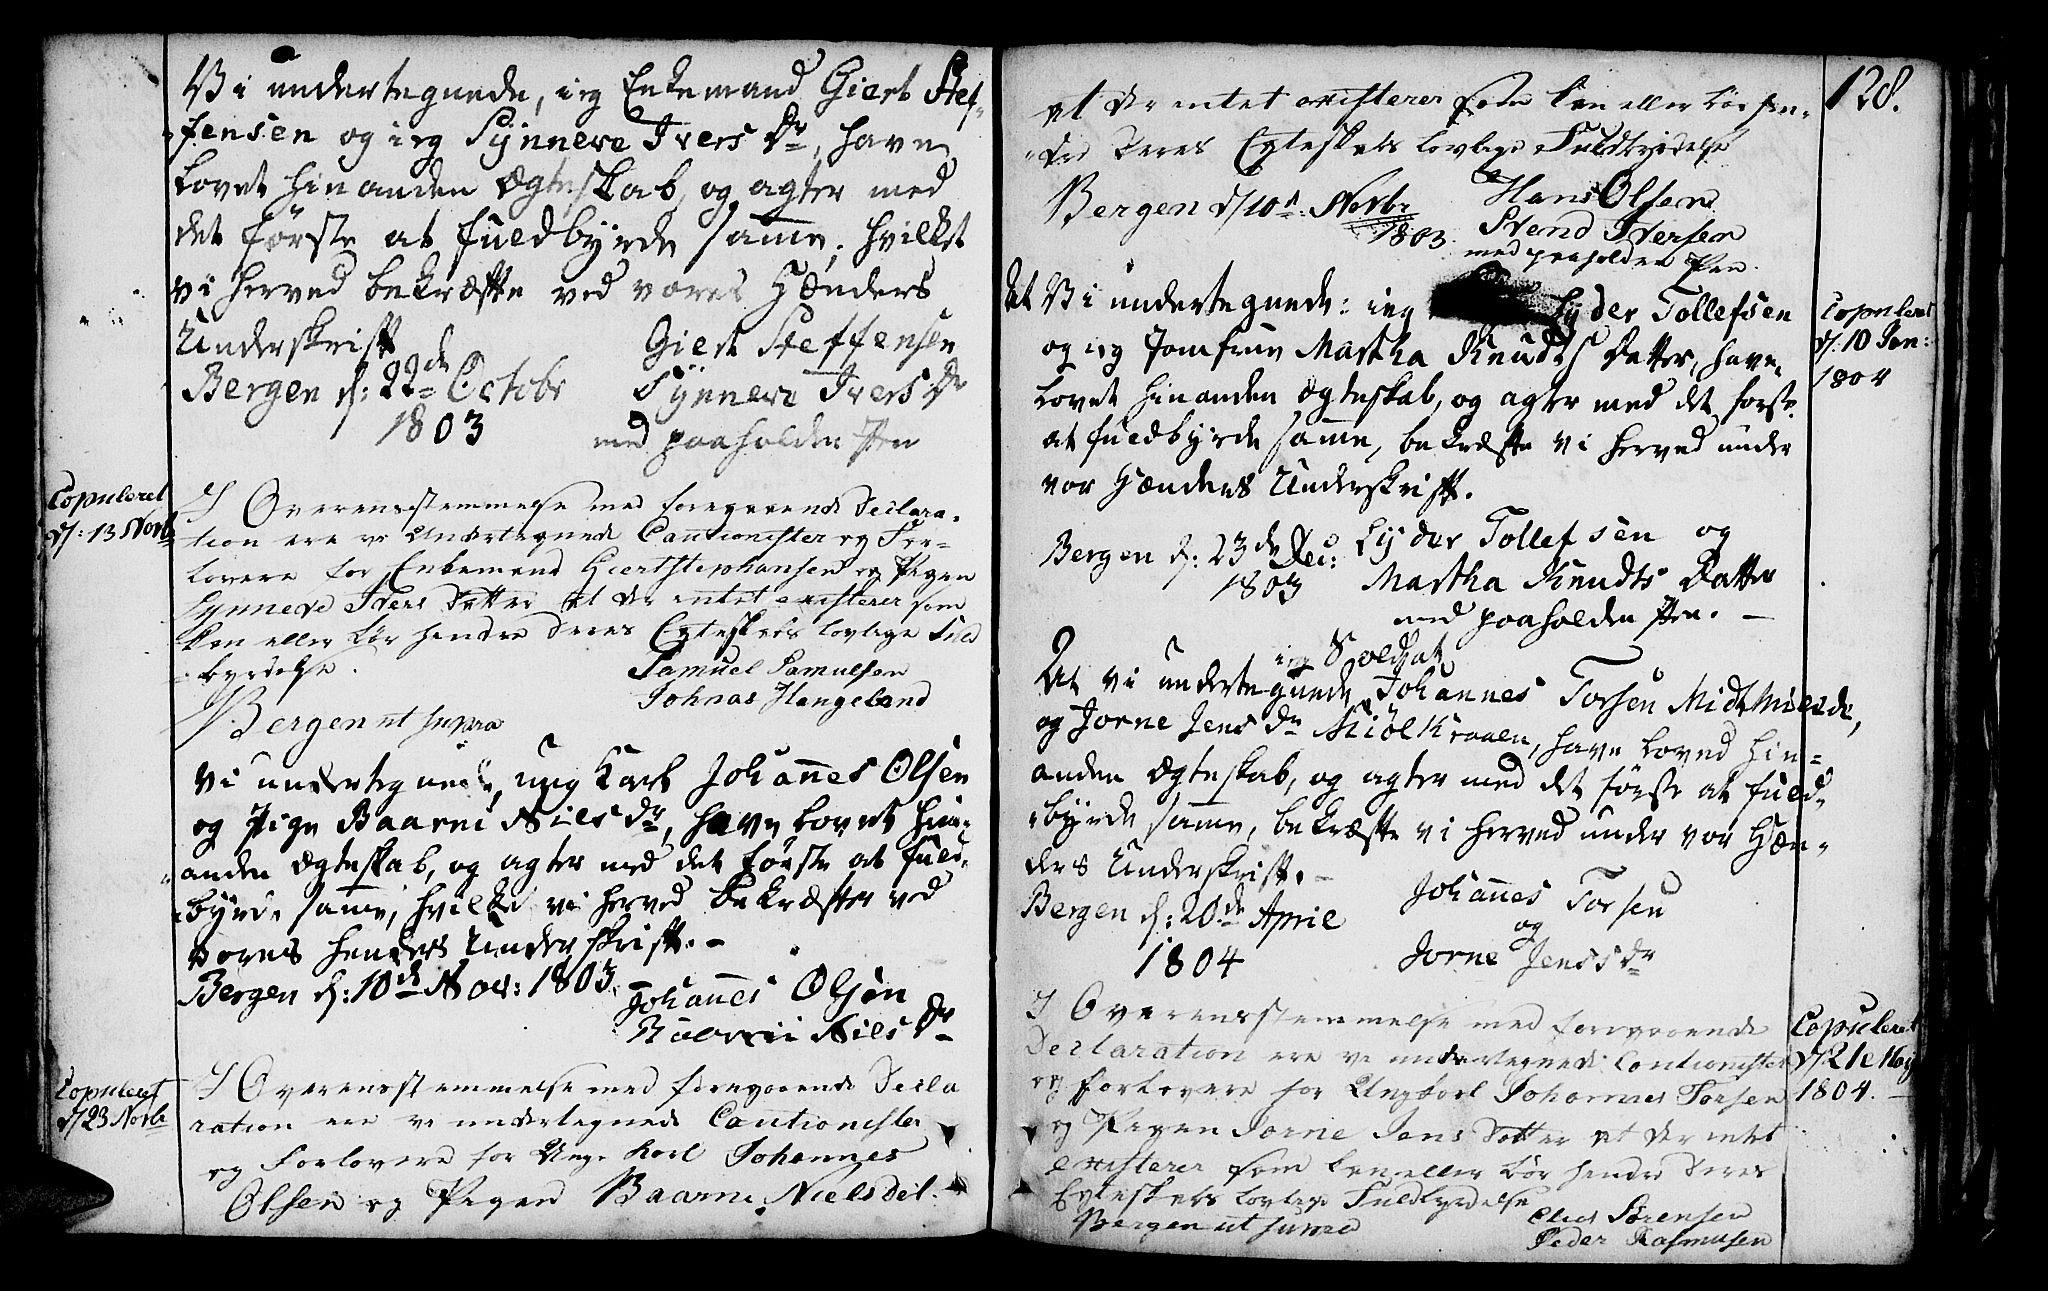 Vi undertegnede, ieg Enkemand Giert Stef-
fensen og ieg Synneve Ivers Dr, have
lovet hinanden Ægteskab, og agter med
det første at fuldbyrde samme, hvilket
vi herved bekræfte ved vores Hænders
Underskrift
Giert Steffensen
Bergen d: 22de Octobr
1803
Synneve Ivers Dr
med paaholden Pen
Copuleret
d/: 13 Novb
I Overensstemmelse med foregaaende Declara-
tion ere vi Undertegnede Cautionister og For-
lovere for Enkemand Giert Stephansen og Pigen
Synneve Ivers Datter at der intet existerer som
kan eller bør hendre deres Egteskabs lovlige Fuld
byrdelse.
Samuel Samuelsen
Johnas Haugeland
Bergen ut supra
Vi undertegnede, ung Karl Johannes Olsen
og Pige Baarni Niels dr, have lovet hin-
anden Ægteskab, og agter med det første at fuld-
byrde samme, hvilket vi herved bekræfter ved
vores henders Underskrift. -
Bergen d: 10de Nov: 1803.
Johannes Olsen
Baarni Niels Dr
Copuleret
d/23 Novbr
I Overensstemmelse med foregaaende Decla
ration ere vi undertegnede Cautionister
og Forlovere for Unge Karl Johannes
Olsen og Pigen Baarne Nielsdat.
128.
at der intet existerer som kan eller bør hen-
dre deres Egteskabs lovlige Fuldbyrdelse
Bergen d/10de Novbr
1803.
Hans Olsen
Svend Iversen
med paaholden Pen.
At Vi undertegnede: ieg Lyder Tollefsen
og ieg Jomfrue Martha Knudts Datter, have
lovet hinanden Ægteskab, og agter med det første
at fuldbyrde samme, bekræfte vi herved under
vor Hænders Underskrift.
Copuleret
d/: 10 Jan:
1804
Bergen d: 23de Dec:
1803
Lyder Tollefsen og
Martha Knudts Datter
med paaholden Pen. -
ieg Soldat
At vi undertegnede, Johannes Torsen Midt
og Jorne Jens Dr, have loved hin-
anden Ægteskab, og agter med det første at fuld-
byrde samme, bekræfte vi herved under vor Hæn-
ders Underskrift. -
Bergen d: 20de April
1804
Johannes Torsen
og
Jorne Jens dr
Copuleret
d/21e May
1804. -
I Overensstemmelse med foregaaende
Declaration ere vi undertegnede Cautionister
og Forlovere for Ungkarl Johannes Torsen
og Pigen Jorne Jens Datter at der intet
existerer som kan eller bør hendre deres
Egteskabs lovlige Fuldbyrdelse
Bergen ut supra
Sørensen
Peder Rasmusen